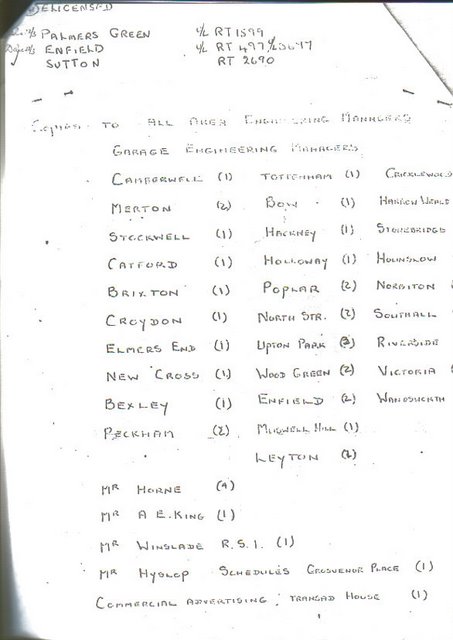 DELICENSED
PALMERS GREEN ℅ RT 1599
ENFIELD ℅ RT 497/3697
SUTTON RT 2690
COPIES TO ALL AREA ENGINEERING MANAGERS
GARAGE ENGINEERING MANAGERS
CAMBERWELL (1) TOTTENHAM (1) CRICKLEWOOD
MERTON (2) BOW (1) HARROW WEALD
STOCKWELL (1) HACKNEY (1) STONEBRIDGE
CATFORD (1) HOLLOWAY (1) HOUNSLOW
BRIXTON (1) POPLAR (2) NORBITON
CROYDON (1) NORTH STR. (2) SOUTHALL
ELMERS END (1) UPTON PARK (3) RIVERSIDE
NEW CROSS (1) WOOD GREEN (2) VICTORIA
BEXLEY (1) ENFIELD (2) WANDSWORTH
PECKHAM (2) MUSWELL HILL (1)
LEYTON (2)
MR HORNE (4)
MR A E. KING (1)
MR WINSLADE R.S.I. (1)
MR HYSLOP SCHEDULES GROSVENOR PLACE (1)
COMMERCIAL ADVERTISING, TRANSAD HOUSE (1)